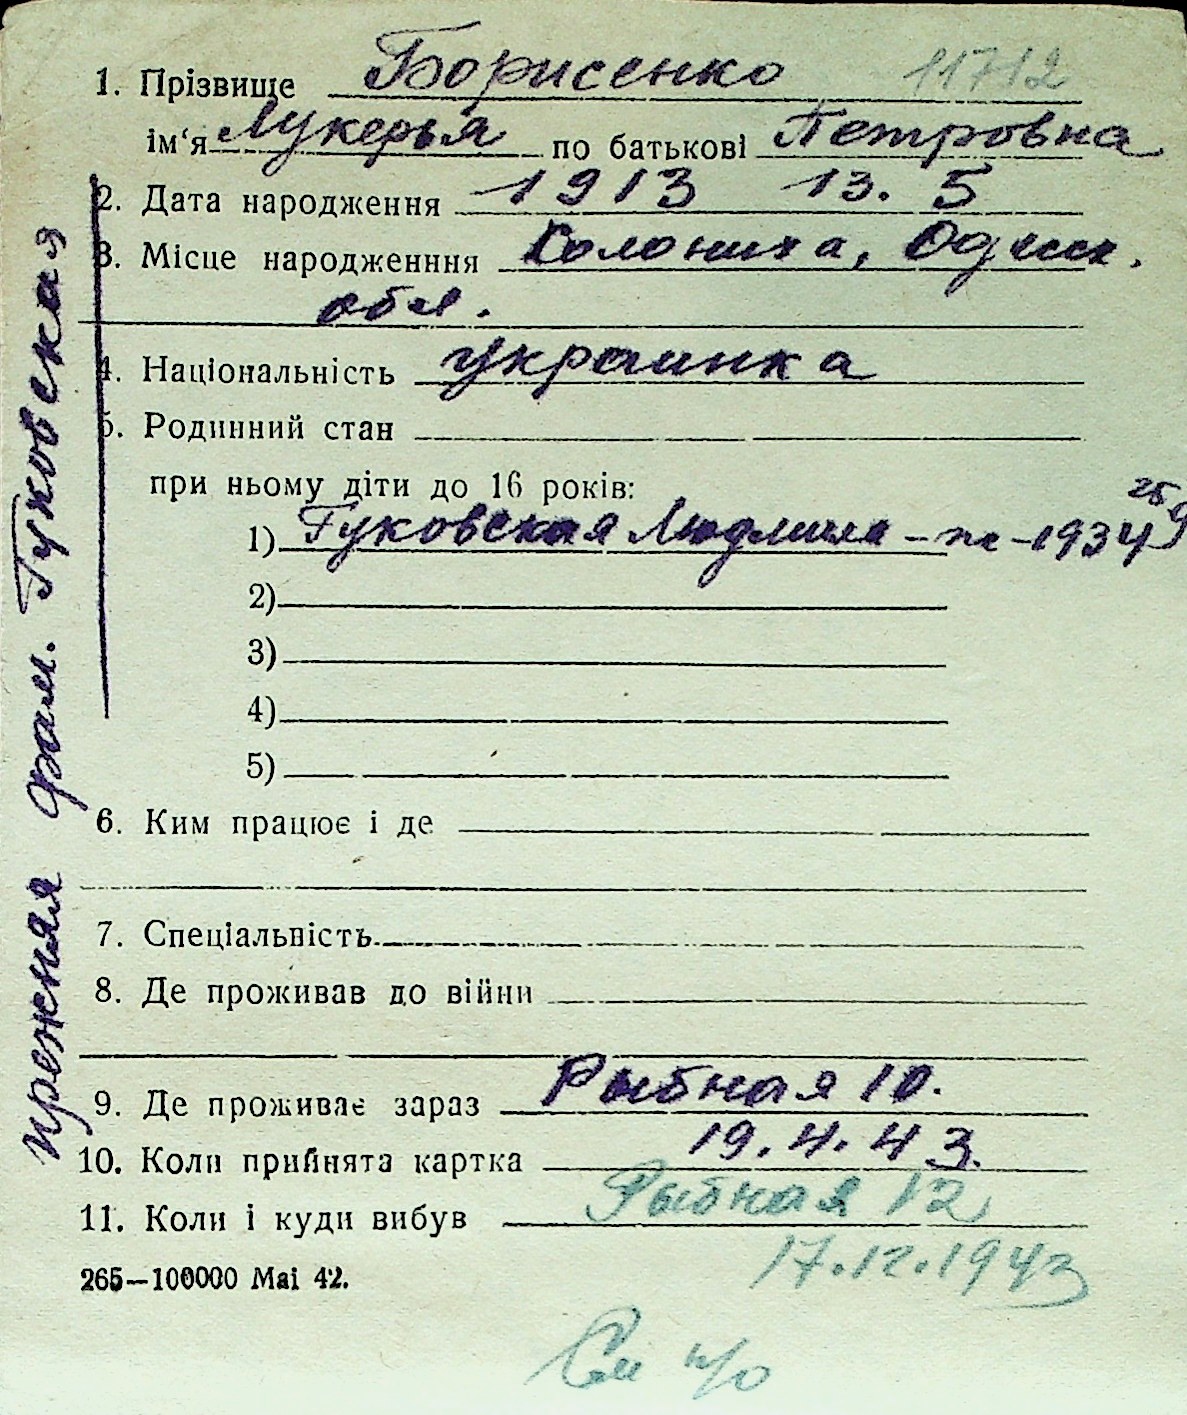 1. Прізвище Борисенко 11712
ім'я Лукерья по батькові Петровна
2. Дата народження 1913 13. 5
3. Місце народженння Одесск.
обл.
4. Національність украинка
5. Родинний стан
при ньому діти до 16 років:
1) Гуковская Людмила - ж - 1934
2)
3)
4)
5)
6. Ким працює і де
7. Спеціальність
8. Де проживав до війни
9. Де проживає зараз Рыбная 10.
10. Коли прийнята картка 19. 4. 43.
11. Коли і куди вибув Рыбная 12
17.12.1943
265—100000 Mai 42.
См н/о
прежняя фам. Гуковская